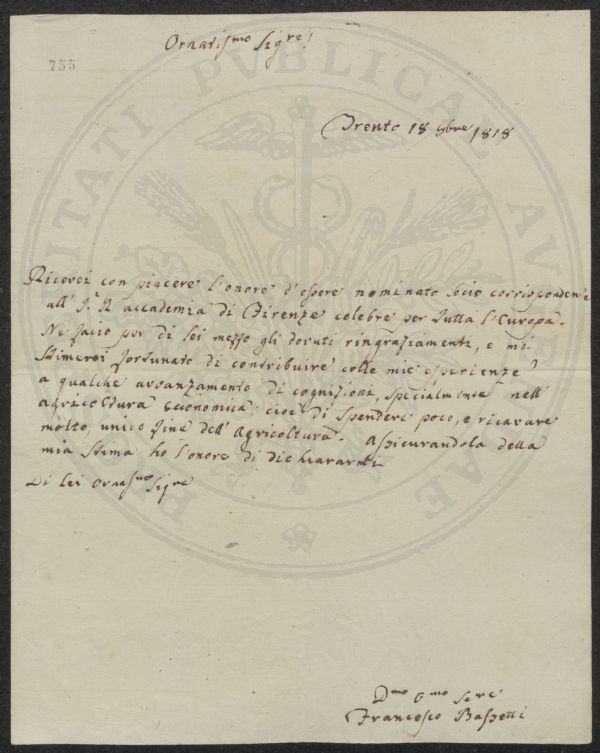 Ornatis.mo Sig.re!
755
Trento 18 8bre 1818
Ricevei con piacere l'onore d'essere nominato socio corrispondente
all' I. R. accademia di Firenze celebre per tutta l'Europa.
Ne facio per di lei mezzo gli dovuti ringraziamenti, e mi
stimerei fortunato di contribuire colle mie esperienze
a qualche avvanzamento di cognizioni, specialmente nell'
agricoltura economica cioè di spendere poco, e ricavare
molto, unico fine dell' agricoltura. assicurandola della
mia stima ho l'onore di dichiararmi
Di lei ornas.mo Sig.re
D.mo O.mo
Francesco Bassetti
PUBLICAE